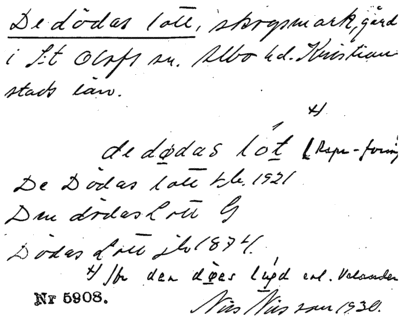 De dödas lott, skogsmark, gård
i S:t Olofs sn. Albo hd. Kristian
stads län.
de dödas lot
De Dödas lott 1921
Den dödas Lott G
Dödas Lott jb 1874.
enl. Velander
Nr 5908.
Nils Nilsson 1930.